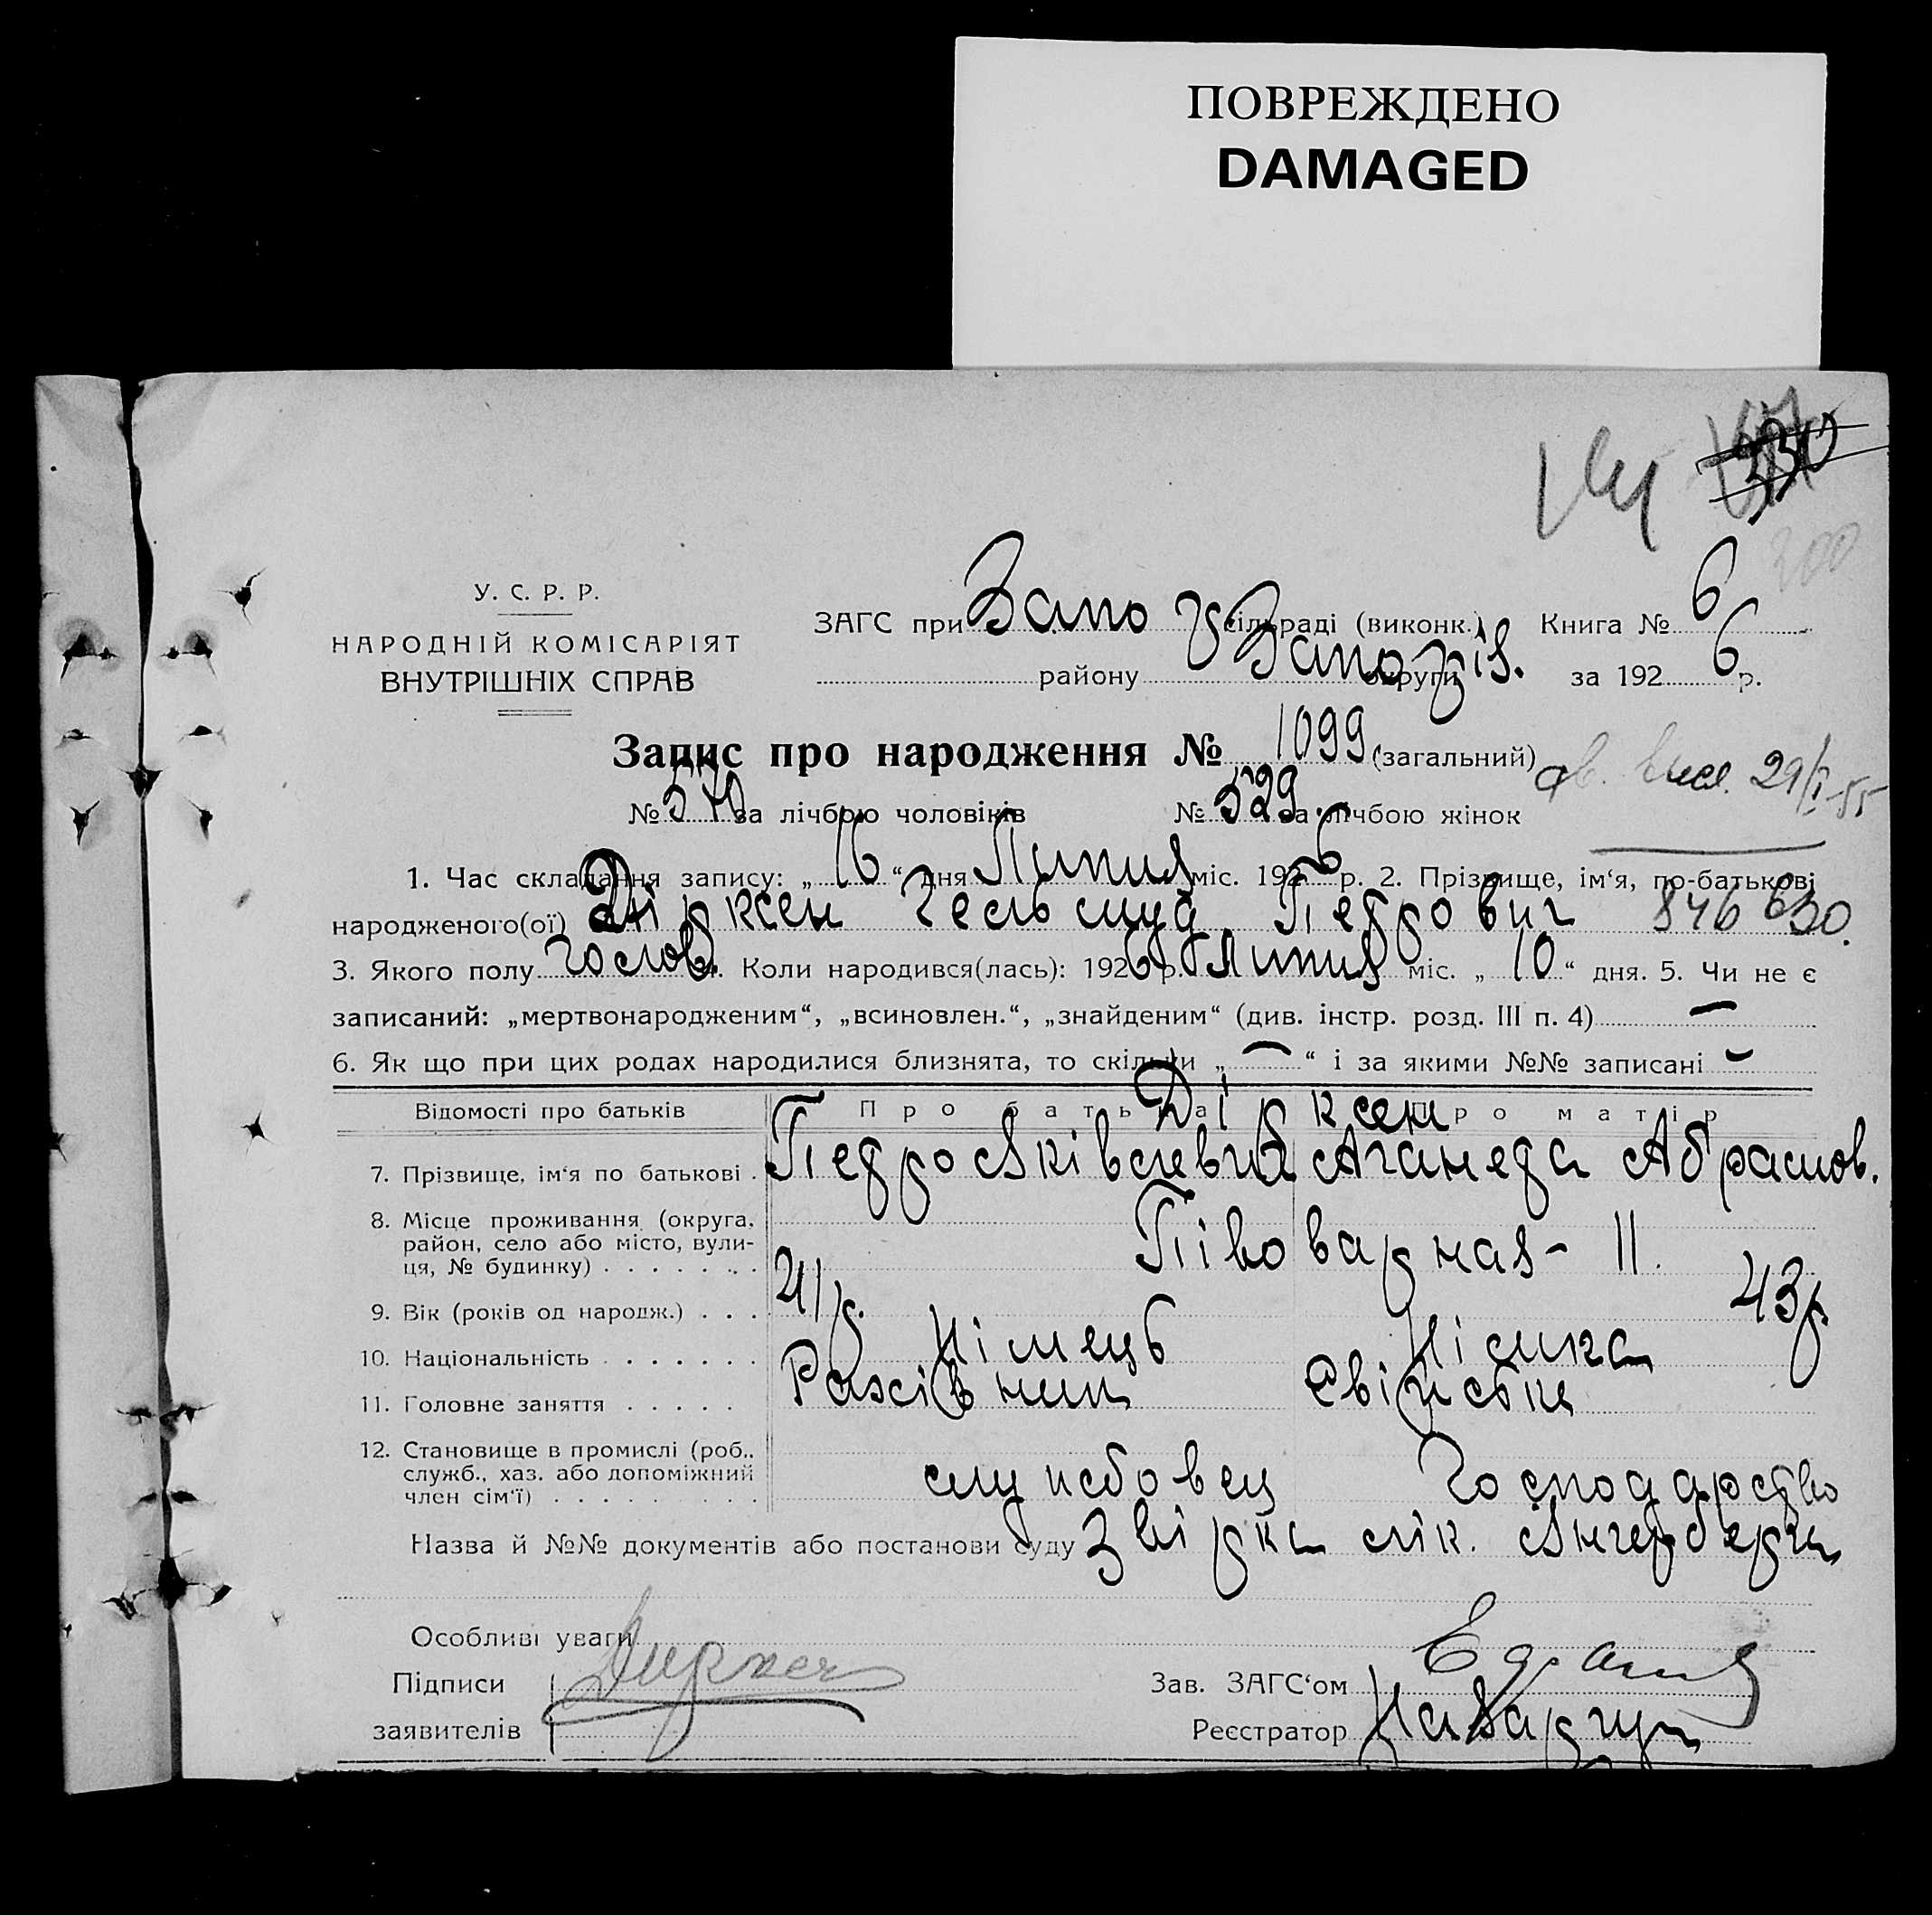 ПОВРЕЖДЕНО
DAMAGED
330
200
У. С. Р. Р.
НАРОДНІЙ КОМІСАРІЯТ
ВНУТРІШНІХ СПРАВ
ЗАГС при Запо сільраді (виконк.) Книга № 6
району Запоріз. округи за 192 6 р.
Запис про народження № 1099 (загальний)
№ 570 за лічбою чоловіків № 529 за лічбою жінок
29/I-55
1. Час складання запису: „ 16 “ дня Липня міс. 192 6 р. 2. Прізвище, ім‘я, по-батькові
народженого(ої) Дірксен Гельмуд Педрович 846630.
3. Якого полу чолов. 4. Коли народився(лась): 192 6 р. Липня міс. „ 10 “ дня. 5. Чи не є
записаний: „мертвонародженим“, „всиновлен.“, „знайденим“ (див. інстр. розд. III п. 4) —
6. Як що при цих родах народилися близнята, то скільки „ — “ і за якими №№ записані —
Відомості про батьків Про батька Про матір
Дірксен
7. Прізвище, ім‘я по батькові . Педро Яківлевич Аганеда Абрамов.
8. Місце проживання (округа,
район, село або місто, вули-
ця, № будинку) . . . . . . . Півоварная - 11.
9. Вік (років од народж.) . . . 41 р. 43 р.
10. Національність . . . . . . . Німець Німка
11. Головне заняття . . . . . Рахівник Свійське
12. Становище в промислі (роб.,
служб., хаз. або допоміжний
член сім‘ї) . . . . . . . . . службовец Господарство
Назва й №№ документів або постанови суду Звірка лік.
Особливі уваги
Підписи Дирксен Зав. ЗАГС‘ом
заявителів Реєстратор